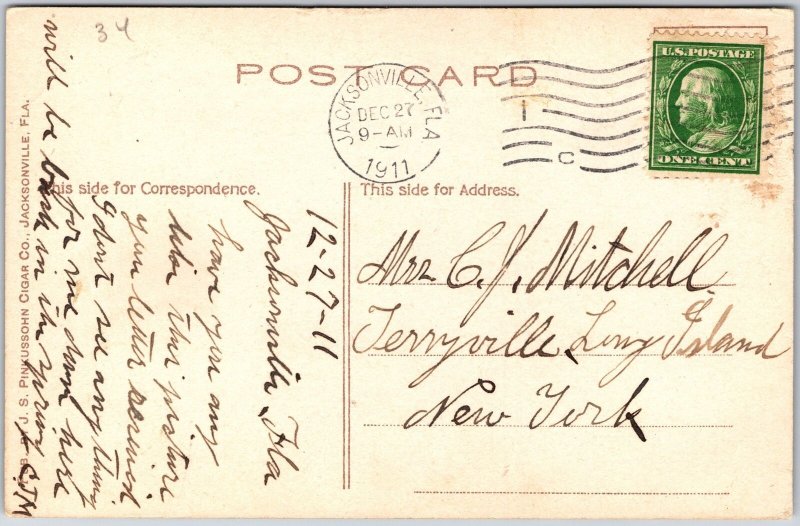 34
POST CARD
JACKSONVILLE, FLA
DEC 27
9-AM
1911
1
C
U.S. POSTAGE
ONE CENT
This side for Correspondence.
This side for Address.
12-27-11
Jacksonville Fla
have you any
like this picture
your letter received
I dont see any thing
for me down here
will be back in the spring
CJM
Mrs C. J. Mitchell
Terryville Long Island
New York
J. S. PINKUSSOHN CIGAR CO., JACKSONVILLE, FLA.